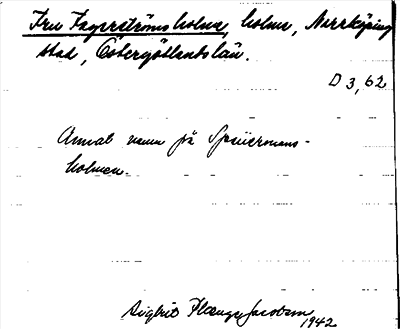 Fru Fagerströms holme, holme, Norrköping
stad, Östergötlands län.
D 3, 62
Annat namn på Spruermans-
holmen.
Sigbrit Plænge Jacobson
1942